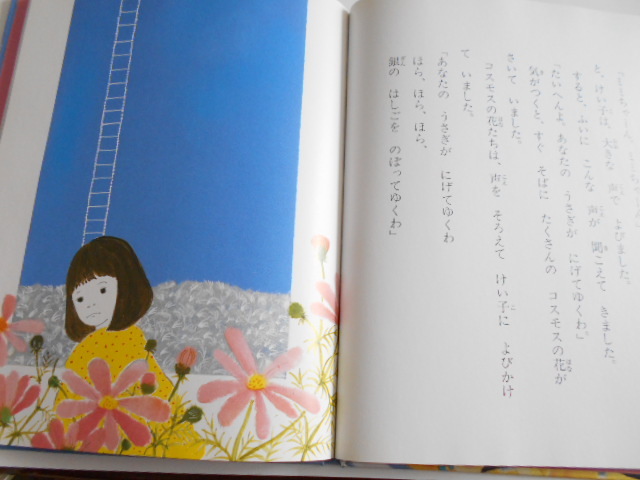 と、けい子は、大きな 声で よびました。
すると、ふいに こんな 声が 聞こえて きました。
「たいへんよ。あなたの うさぎが にげてゆくわ。」
気がつくと、すぐ そばに たくさんの コスモスの花が
さいて いました。
コスモスの花たちは、声を そろえて けい子に よびかけ
て いました。
「あなたの うさぎが にげてゆくわ
ほら、ほら、ほら、
銀の はしごを のぼってゆくわ」